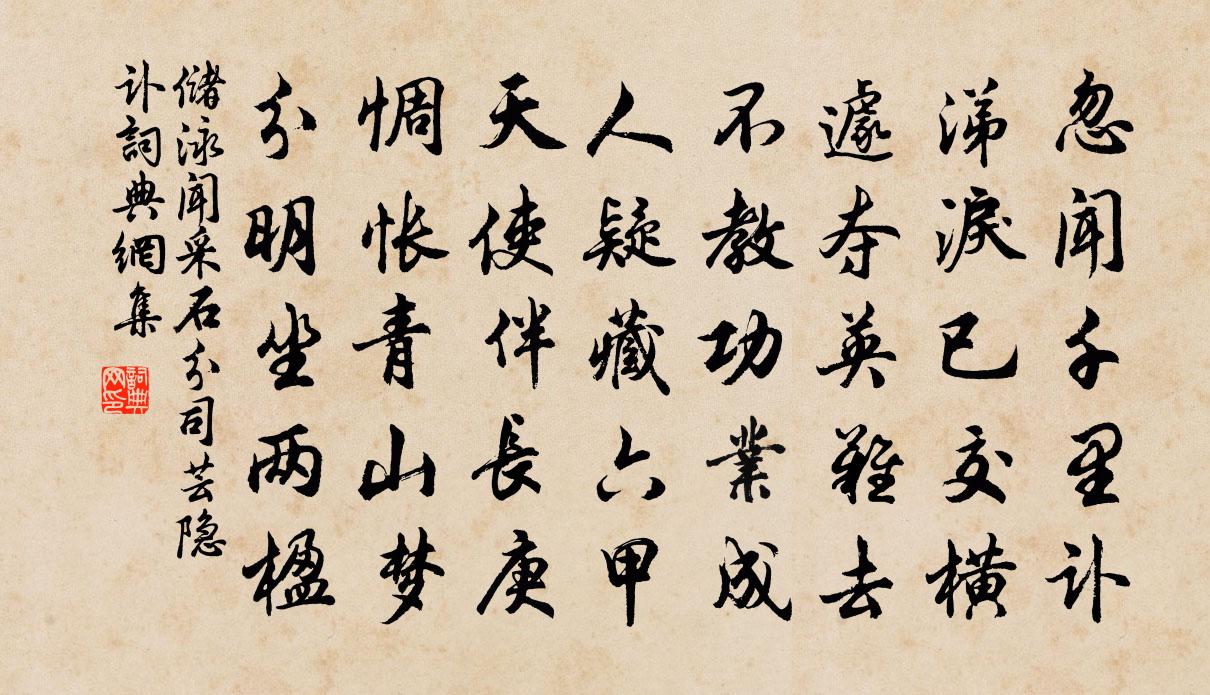 忽闻千里讣
涕淚已交横
遽夺英難去
不教功業成
人疑藏六甲
天使伴長庚
惆怅青山梦
分明坐两楹
储泳闻采石分司芸隐
讣詞典網集
詞典
网印